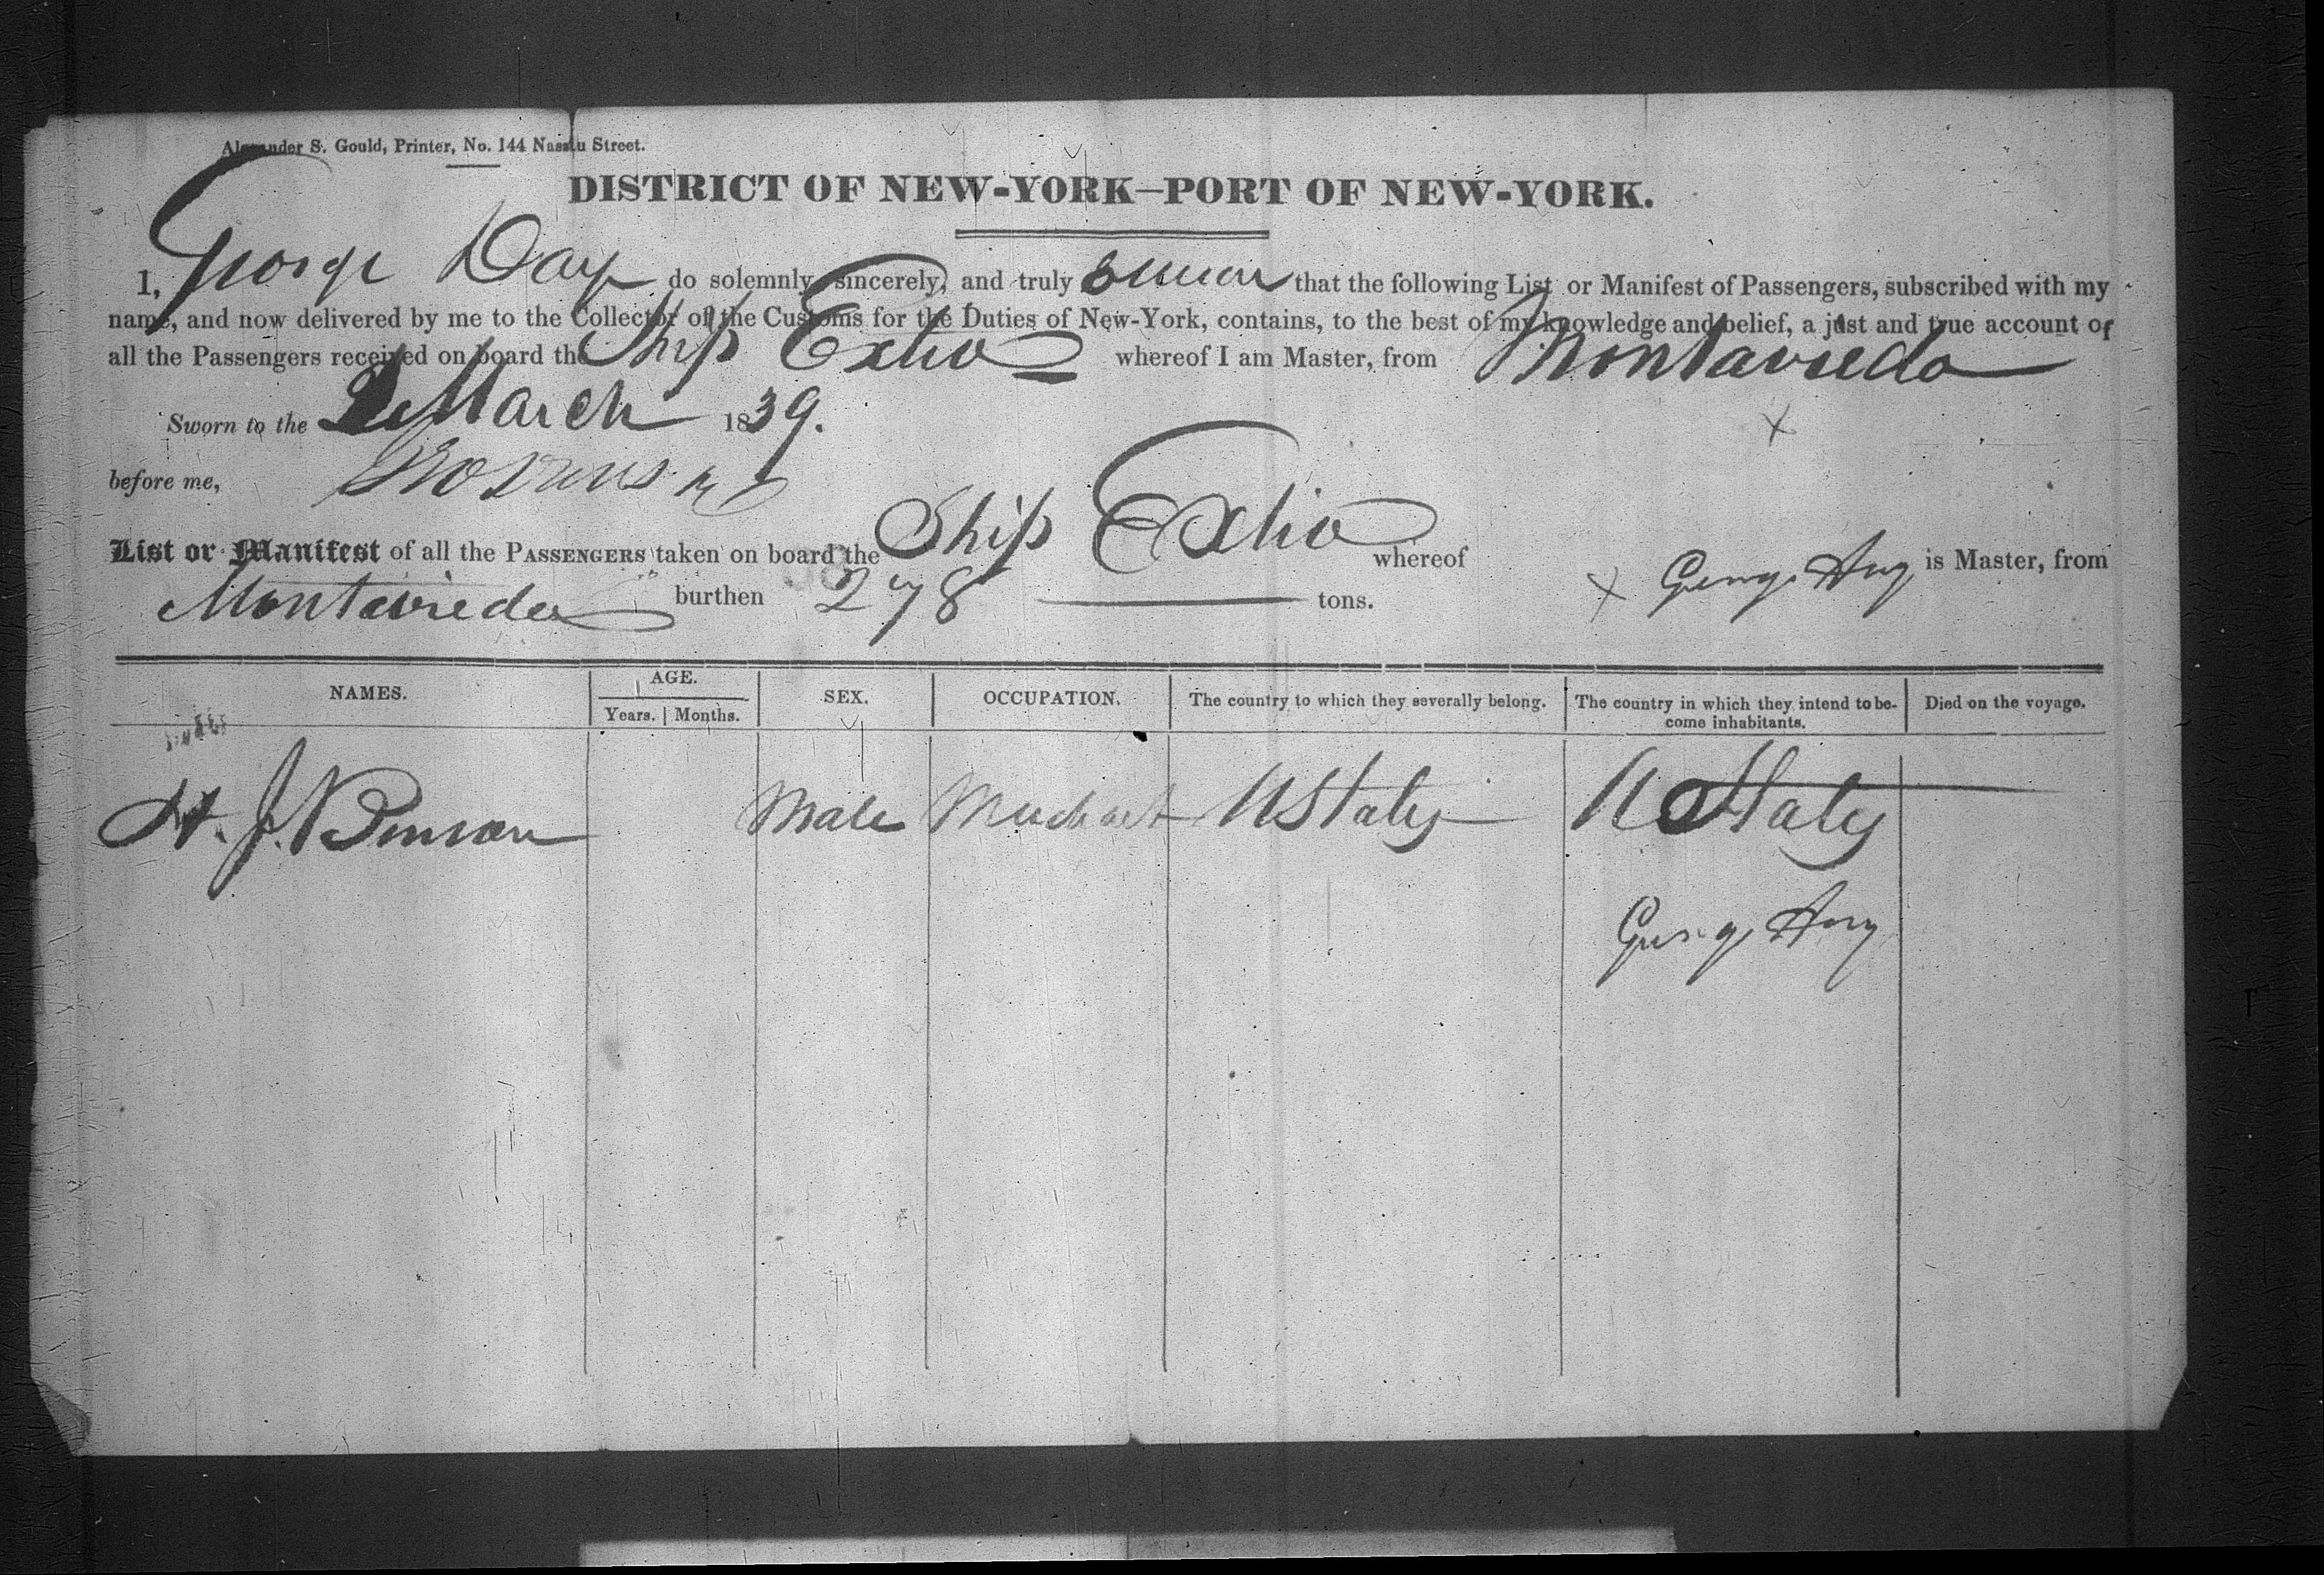 Alexander S. Gould, Printer, No. 144 Nassau Street.
DISTRICT OF NEW-YORK—PORT OF NEW-YORK.
I, George Day do solemnly, sincerely, and truly swear that the following List or Manifest of Passengers, subscribed with my
name, and now delivered by me to the Collector of the Customs for the Duties of New-York, contains, to the best of my knowledge and belief, a just and true account of
all the Passengers received on board the Ship whereof I am Master, from Montavredo
Sworn to the 2 March 1839.
before me,
List or Manifest of all the PASSENGERS taken on board the Ship whereof George is Master, from
Montavredo burthen 278 tons.
NAMES. AGE. SEX. OCCUPATION. The country to which they severally belong. The country in which they intend to be-come inhabitants. Died on the voyage.
Years. Months.
H. J. Benson Male Merchant U States U States
George